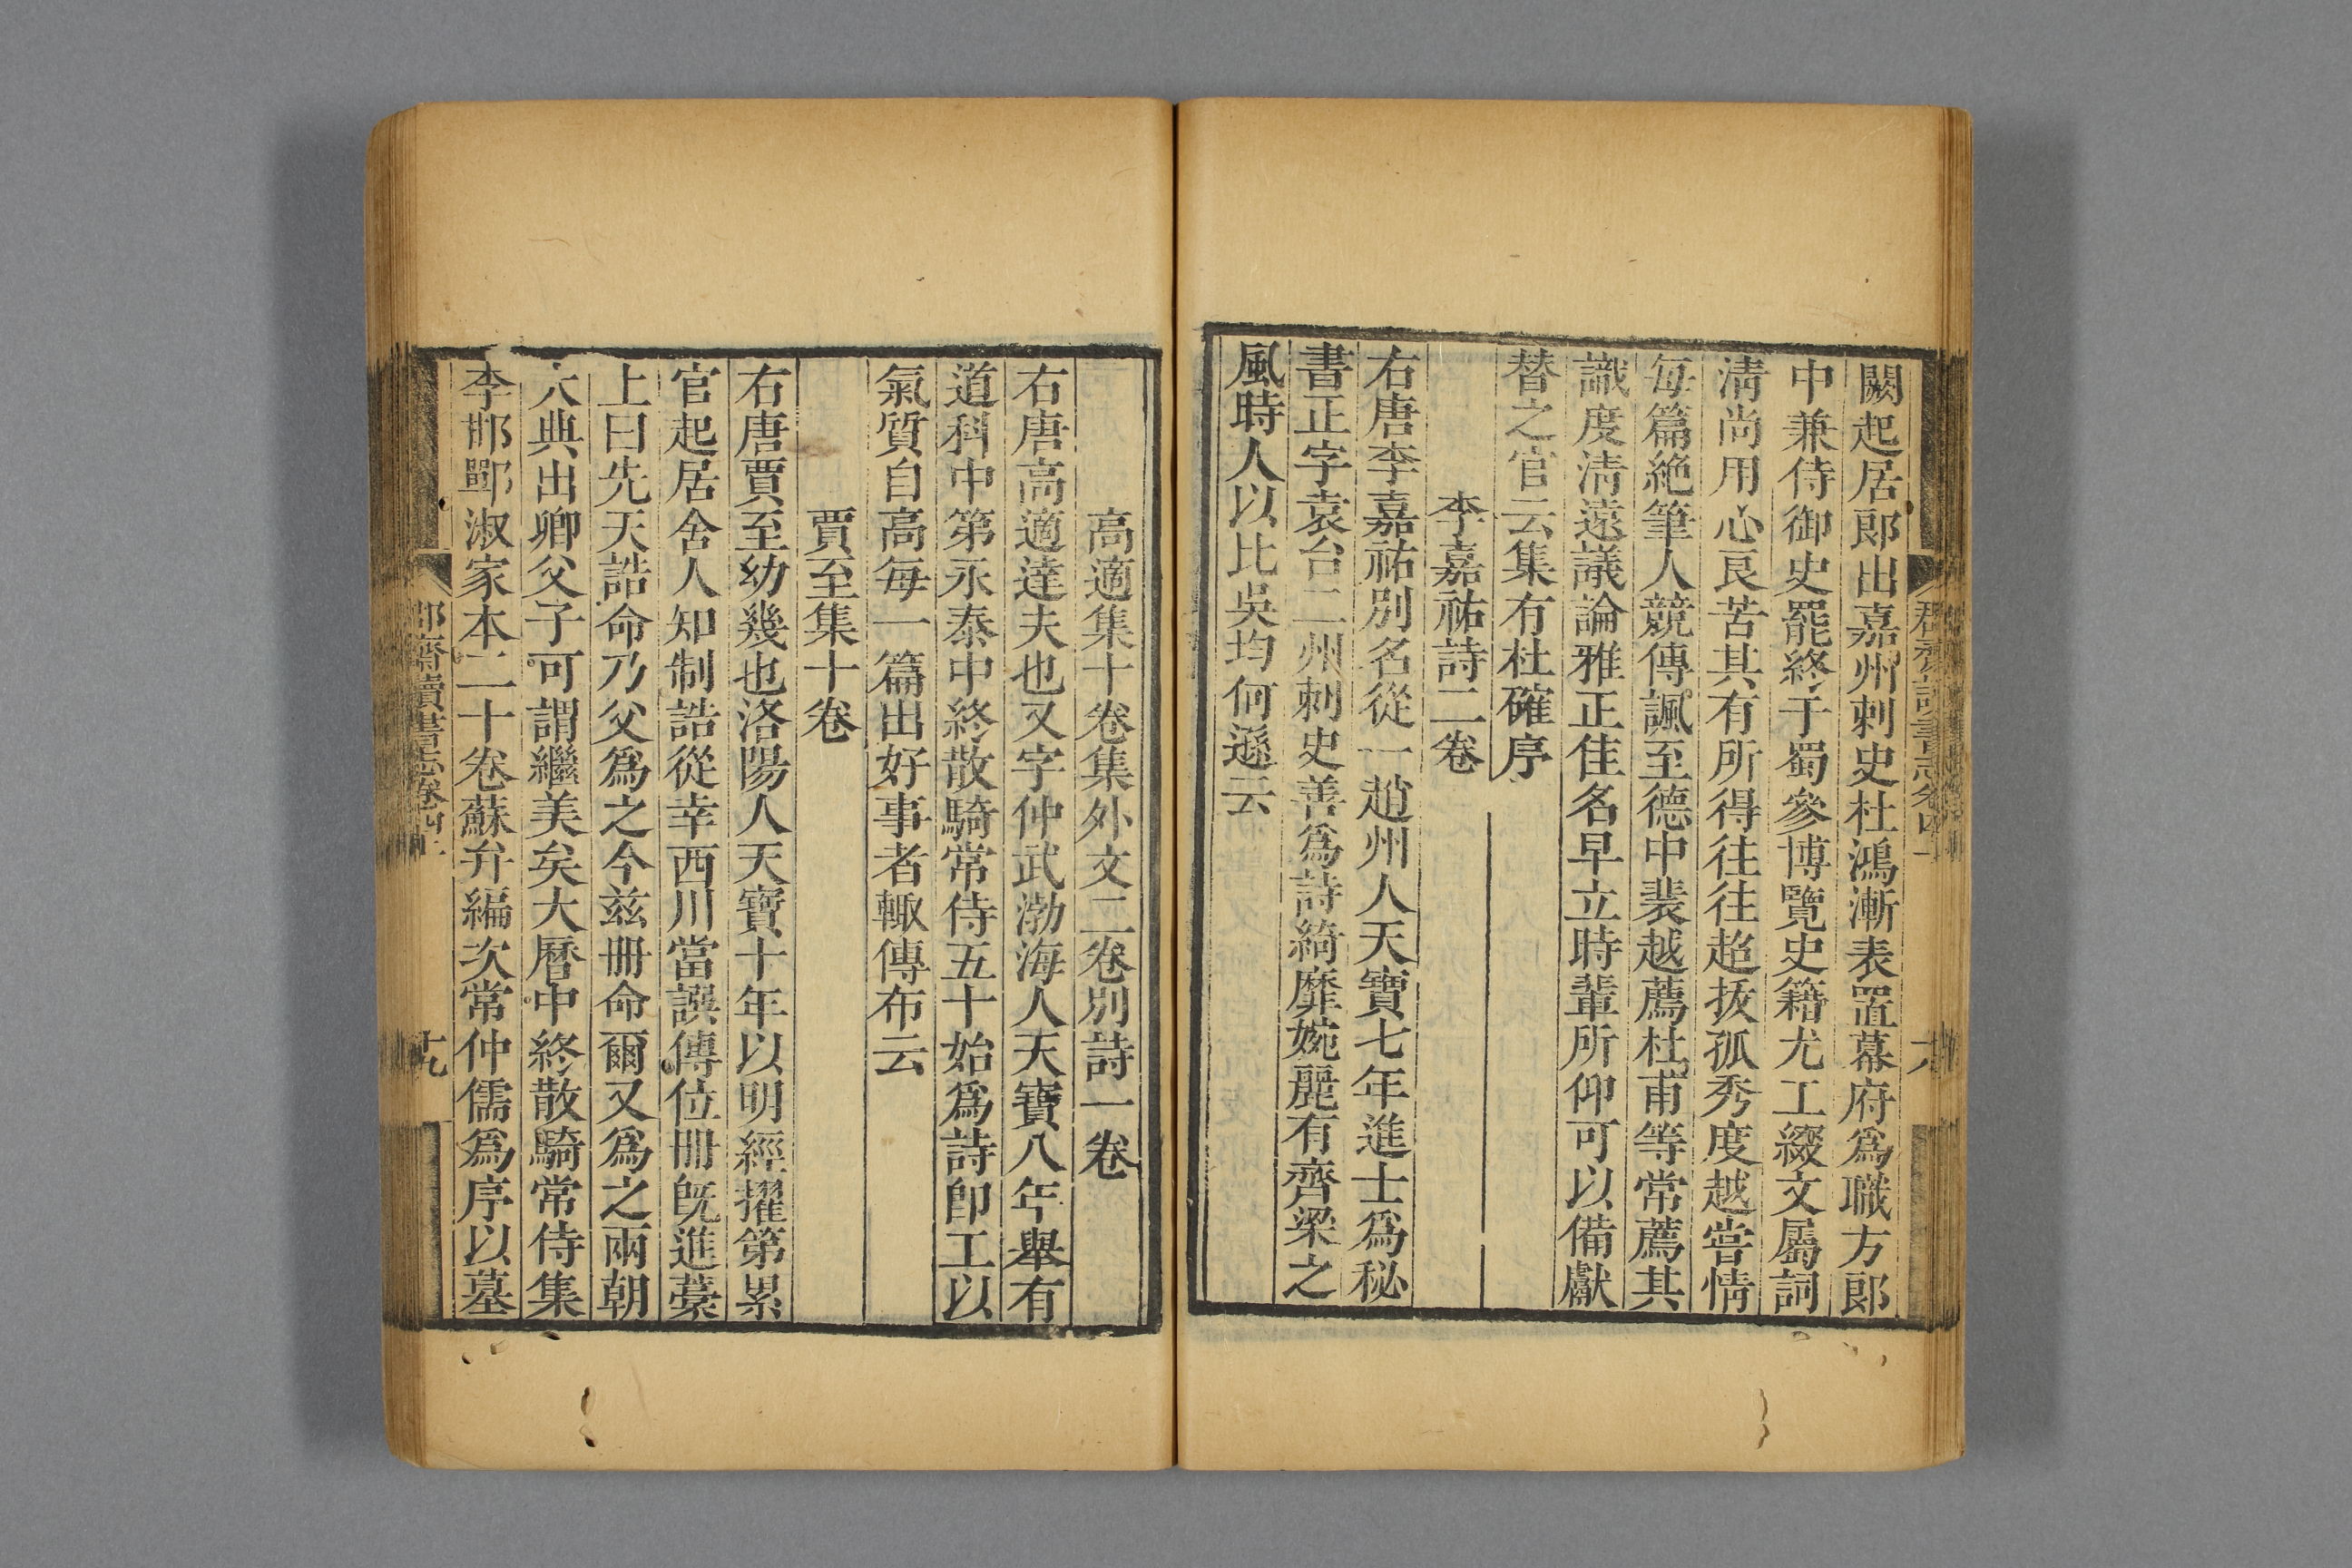 闕起居郎出嘉州刺史杜鴻漸表置幕府爲職方郎
中兼侍御史罷終于蜀參博覽史籍尤工綴文屬詞
淸尚用心良苦其有所得往往超拔孤秀度越嘗情
每篇絶筆人競傳諷至德中裴越薦杜甫等常薦其
識度淸遠議論雅正佳名早立時輩所仰可以備獻
替之官云集有杜確序
李嘉祐詩二卷
右唐李嘉祐別名從一趙州人天寶七年進士爲秘
書正字袁台二州刺史善爲詩綺靡婉麗有齊梁之
風時人以比吳均何遜云
高適集十卷集外文二卷別詩一卷
右唐高適達夫也又字仲武渤海人天寶八年舉有
道科中第永泰中終散騎常侍五十始爲詩即工以
氣質自高每一篇出好事者輙傳布云
賈至集十卷
右唐賈至幼幾也洛陽人天寶十年以明經擢第累
官起居舍人知制誥從幸西川當譔傳位冊旣進藁
上曰先天誥命乃父爲之今兹冊命爾又爲之兩朝
大典出卿父子可謂繼美矣大曆中終散騎常侍集
李邯鄲淑家本二十卷蘇弁編次常仲儒爲序以墓
郡齋讀書志卷四上
十九